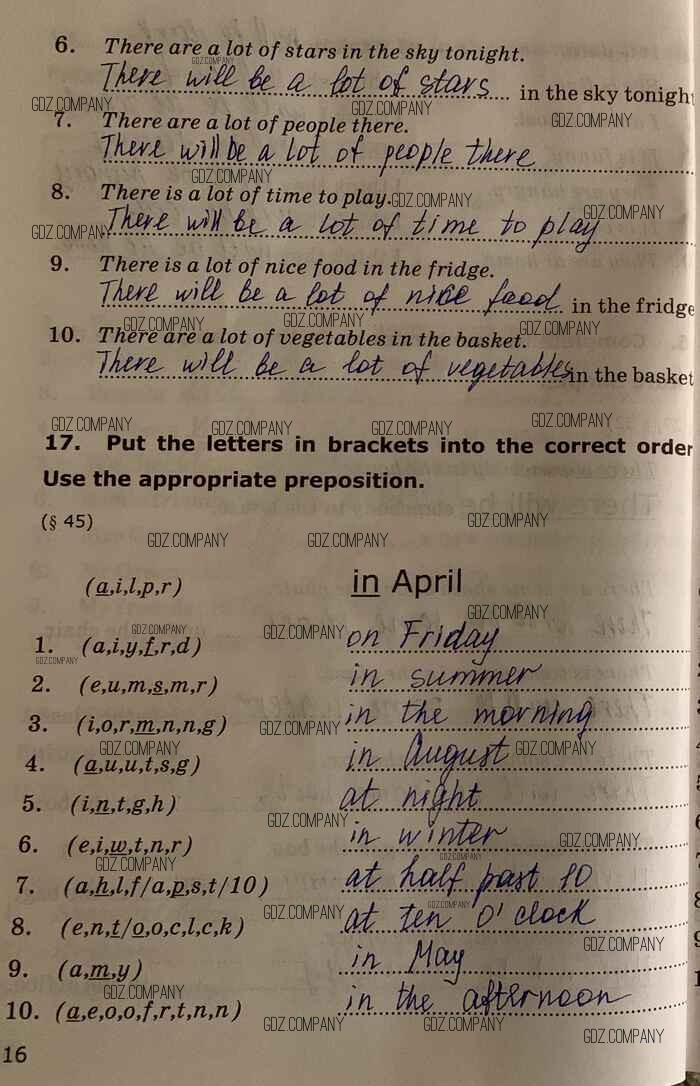 6. There are a lot of stars in the sky tonight.
There will be a lot of stars in the sky tonight
7. There are a lot of people there.
There will be a lot of people there
8. There is a lot of time to play.
There will be a lot of time to play
9. There is a lot of nice food in the fridge.
There will be a lot of nice food in the fridge
10. There are a lot of vegetables in the basket.
There will be a lot of vegetables in the basket
17. Put the letters in brackets into the correct order
Use the appropriate preposition.
(§ 45)
(a,i,l,p,r) in April
1. (a,i,y,f,r,d) on Friday
2. (e,u,m,s,m,r) in summer
3. (i,o,r,m,n,n,g) in the morning
4. (a,u,u,t,s,g) in August
5. (i,n,t,g,h) at night
6. (e,i,w,t,n,r) in winter
7. (a,h,l,f/a,p,s,t/10) at half past 10
8. (e,n,t/o,o,c,l,c,k) at ten o'clock
9. (a,m,y) in May
10. (a,e,o,o,f,r,t,n,n) in the afternoon
16
GDZ.COMPANY